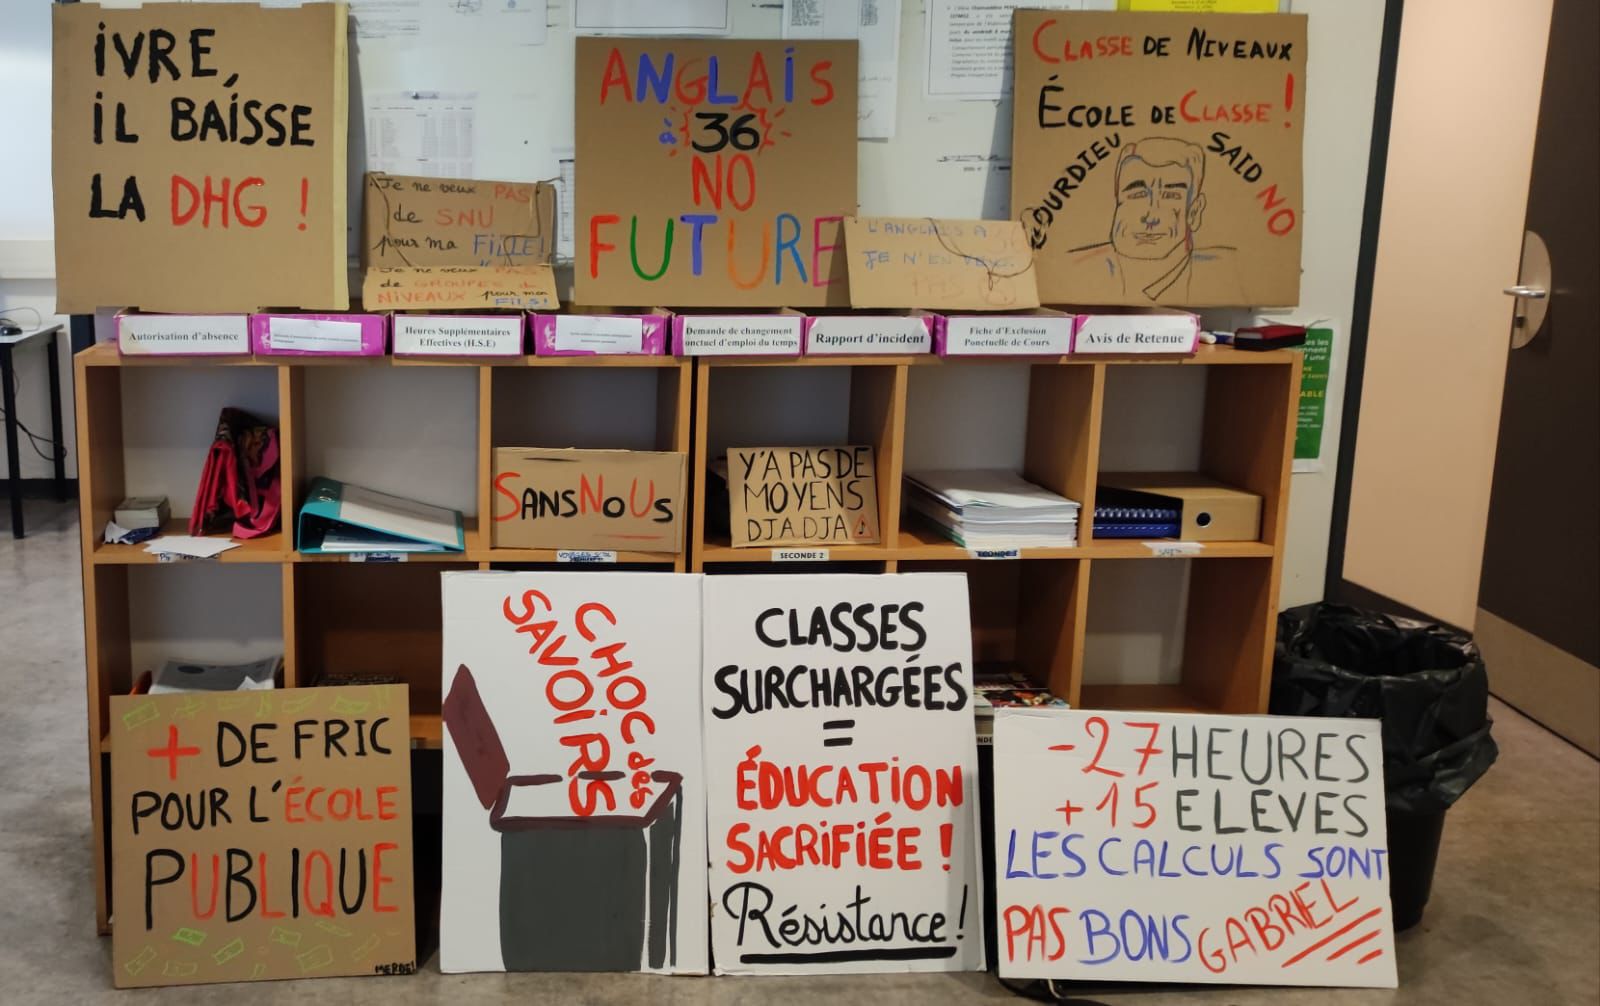 IVRE,
IL BAISSE
LA DHG !
Je ne veux PAS
de SNU
pour ma FILLE!
Je ne veux PAS
de GROUPES de
NIVEAUX pour mon
FILS!
ANGLAIS
à 36
NO
FUTURE
L'ANGLAIS A 36
JE N'EN VEUX
PAS
CLASSE DE NIVEAUX
ÉCOLE DE CLASSE !
BOURDIEU SAID NO
Autorisation d'absence
Heures Supplémentaires
Effectives (H.S.E)
Demande de changement
ponctuel d'emploi du temps
Rapport d'incident
Fiche d'Exclusion
Ponctuelle de Cours
Avis de Retenue
SANS NOUS
Y'A PAS DE
MOYENS
DJADJA
SECONDE 2
+ DE FRIC
POUR L'ÉCOLE
PUBLIQUE
MERDE!
CHOC des
SAVOIRS
CLASSES
SURCHARGÉES
=
ÉDUCATION
SACRIFIÉE !
Résistance !
-27 HEURES
+15 ELEVES
LES CALCULS SONT
PAS BONS GABRIEL